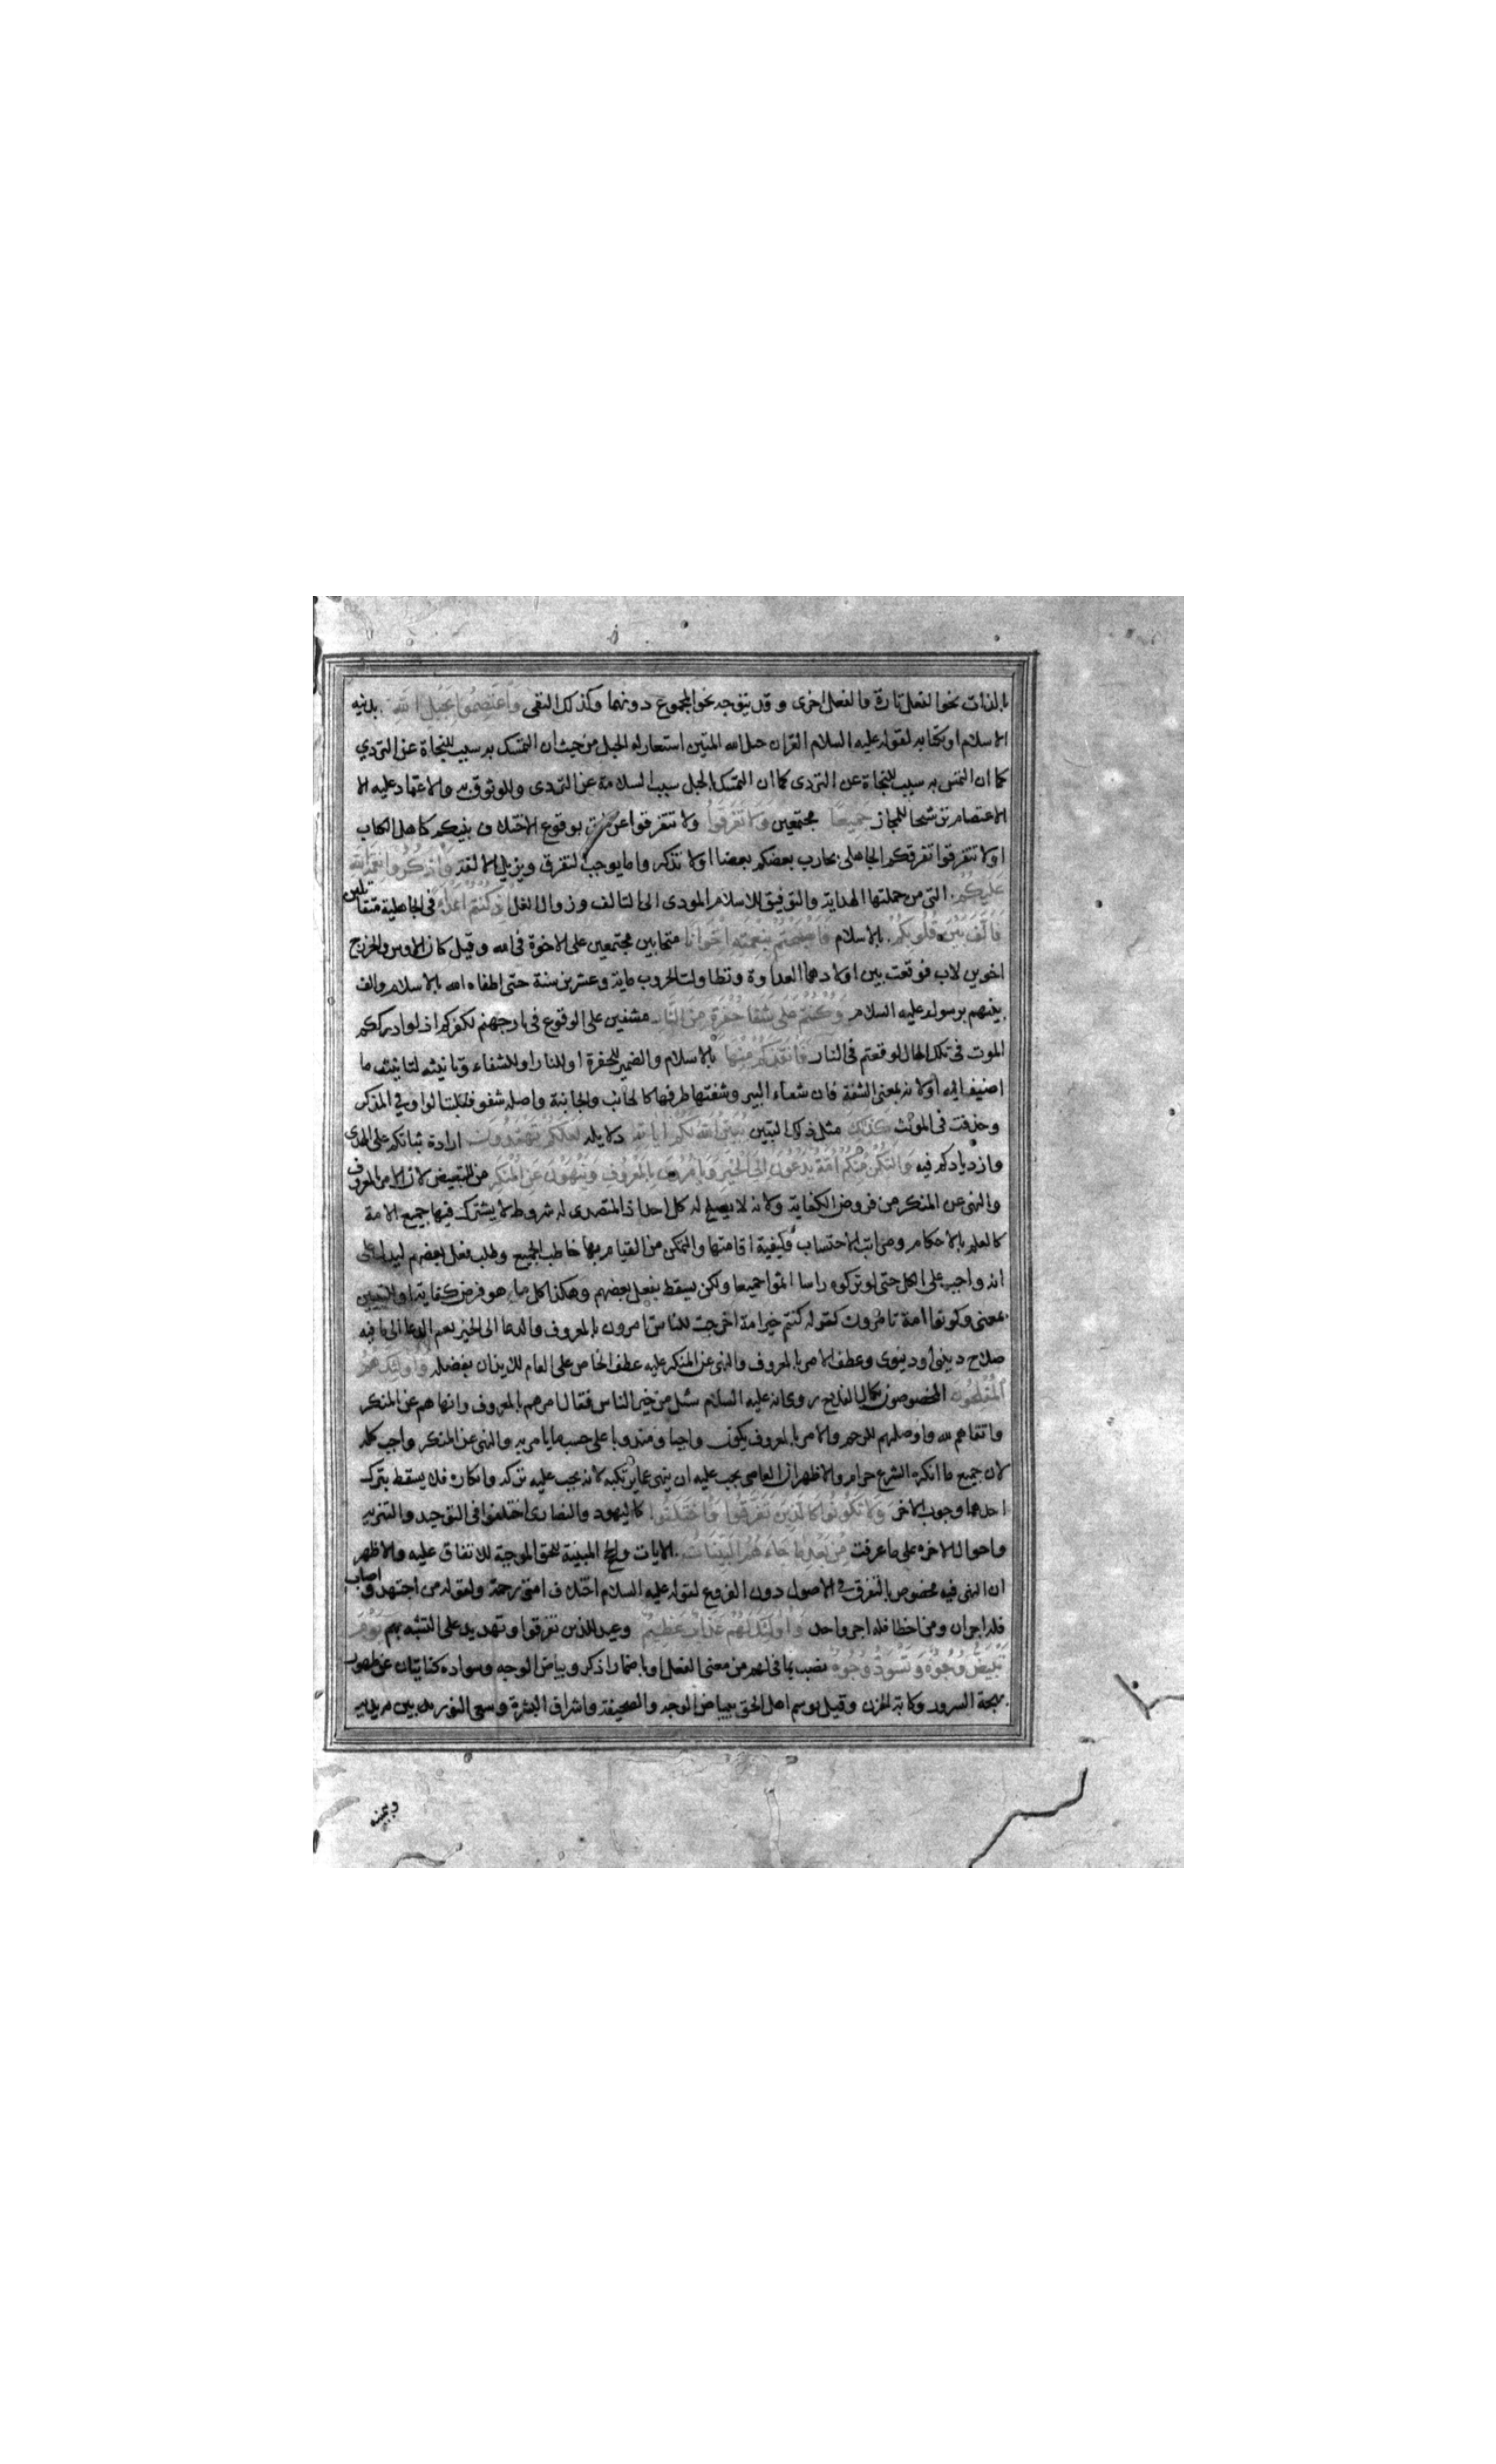 بالذات نحو الفعل تارة والفعل اخرى وقد يتوجه نحو المجموع دونهما وكذلك النفى واعتصموا بحبل الله بدينه
الاسلام او بكتابه لقوله عليه السلام القران حبل الله المتين استعار له الحبل من حيث ان التمسك به سبب للنجاة عن التردي
كما ان التمس به سبب للنجاة عن التردى كما ان التمسك بالحبل سبب السلامة عن التردى وللوثوق به والاعتماد عليه الا
الاعتصام ترشحا للمجاز جميعا مجتمعين ولا تفرقوا ولا تتفرقوا عن بوقوع الاختلاف بينكم كاهل الكتاب
او لا تتفرقوا تفرقكم الجاهلى يحارب بعضكم بعضا او لا تذكروا ما يوجب التفرق ويزيل الالفة واذكروا نعمة الله
عليكم التى من جملتها الهداية والتوفيق للاسلام المودى الى التالف وزوال الغل اذ كنتم اعداء فى الجاهلية متقاتلين
فالف بين قلوبكم بالاسلام فاصبحتم بنعمته اخوانا متحابين مجتمعين على الاخوة فى الله وقيل كان الاوس والخزرج
اخوين لاب فوقعت بين اولادهما العداوة وتطاولت الحروب ماية وعشرين سنة حتى اطفاه الله بالاسلام والف
بينهم برسوله عليه السلام وكنتم على شفا حفرة من النار مشفين على الوقوع فى نار جهنم لكفركم اذ لو ادرككم
الموت فى تلك الحال لوقعتم فى النار فانقذكم منها بالاسلام والضمير للحفرة او للنار او للشفاء وتانيثه لتانيث ما
اضيف اليه او لانه بمعنى الشفة فان شفاء البير وشفتها طرفها كالجانب والجانبة واصله شفو فقلبت الواو في المذكر
وحذفت فى المونث كذلك مثل ذلك التبيين يبين الله لكم اياته دلايله لعلكم تهتدون ارادة ثباتكم على الهدى
وازديادكم فيه ولتكن منكم امة يدعون الى الخير ويامرون بالمعروف وينهون عن المنكر من للتبعيض لان الامر بالمعروف
والنهى عن المنكر من فروض الكفاية ولانه لا يصلح له كل احد اذ المتصدى له شروط لا يشترك فيها جميع الامة
كالعلم بالاحكام ومراتب الاحتساب وكيفية اقامتها والتمكن من القيام بها خاطب الجميع وطلب فعل بعضهم ليدل على
انه واجب على الكل حتى لو تركوه راسا اثموا جميعا ولكن يسقط بفعل بعضهم وهكذا كل ما هو فرض كفاية او للتبيين
بمعنى وكونوا امة تامرون كقوله كنتم خير امة اخرجت للناس تامرون بالمعروف والدعا الى الخير يعم الدعا الى ما فيه
صلاح دينى او دنيوى وعطف الامر بالمعروف والنهى عن المنكر عليه عطف الخاص على العام للايذان بفضله واولئك هم
المفلحون المخصوصون بكمال الفلاح روى انه عليه السلام سئل من خير الناس فقال امرهم بالمعروف وانهاهم عن المنكر
واتقاهم لله واوصلهم للرحم والامر بالمعروف يكون واجبا ومندوبا على حسب ما يامر به والنهى عن المنكر واجب كله
لان جميع ما انكره الشرع حرام والاظهر ان العاصى يجب عليه ان ينهى عما يرتكبه لانه يجب عليه تركه وانكاره فلا يسقط بترك
احدهما وجوب الاخر ولا تكونوا كالذين تفرقوا واختلفوا كاليهود والنصارى اختلفوا فى التوحيد والتنزيه
واحوال الاخرة على ما عرفت من بعد ما جاءهم البينات الايات والحجج المبينة للحق الموجبة للاتفاق عليه والاظهر
ان النهى فيه مخصوص بالتفرق في الاصول دون الفروع لقوله عليه السلام اختلاف امتى رحمة ولقوله من اجتهد واصاب
فله اجران ومن اخطا فله اجر واحد واولئك لهم عذاب عظيم وعيد للذين تفرقوا وتهديد على التشبه بهم يوم
تبيض وجوه وتسود وجوه نصب بما فى لهم من معنى الفعل او باضمار اذكر وبياض الوجه وسواده كنايتان عن ظهور
بهجة السرور وكابة الحزن وقيل يوسم اهل الحق ببياض الوجه والصحيفة واشراق البشرة وسعى النور بين يديه